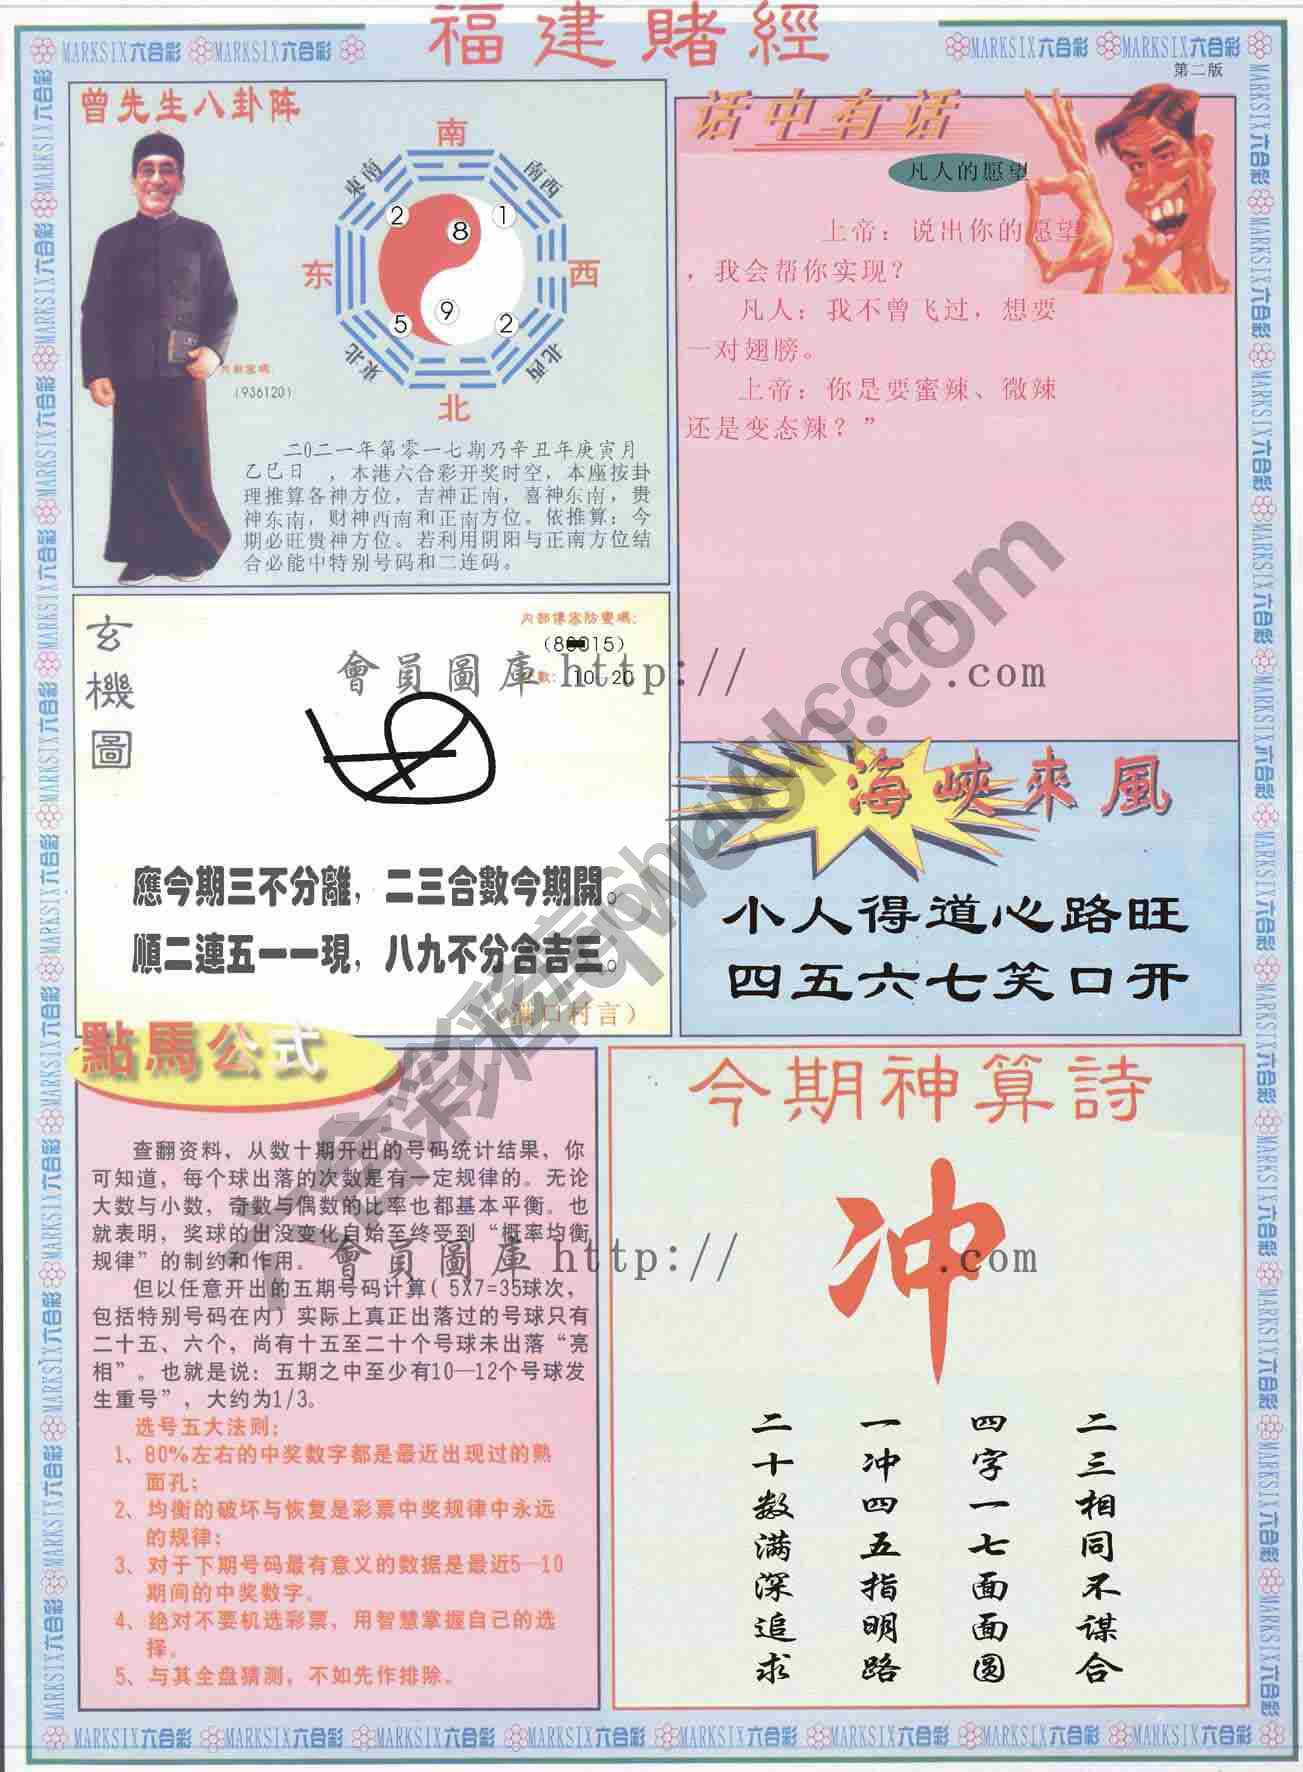 福建賭經
MARKSIX六合彩 MARKSIX六合彩
MARKSIX六合彩 MARKSIX六合彩
第二版
曾先生八卦阵
南
東南
南西
2
8
1
东
西
5
9
2
東北
北西
北
(936120)
二0二一年第零一七期乃辛丑年庚寅月
乙巳日 ，本港六合彩开奖时空，本座按卦
理推算各神方位，吉神正南，喜神东南，贵
神东南，财神西南和正南方位。依推算：今
期必旺贵神方位。若利用阴阳与正南方位结
合必能中特别号码和二连码。
话中有话
凡人的愿望
上帝：说出你的愿望
，我会帮你实现？
凡人：我不曾飞过，想要
一对翅膀。
上帝：你是要蜜辣、微辣
还是变态辣？”
玄機圖
10、20
會員圖庫 http:// .com
應今期三不分離，二三合數今期開。
順二連五一一現，八九不分合吉三。
（满口村言）
海峽來風
小人得道心路旺
四五六七笑口开
點馬公式
查翻资料，从数十期开出的号码统计结果，你
可知道，每个球出落的次数是有一定规律的。无论
大数与小数，奇数与偶数的比率也都基本平衡。也
就表明，奖球的出没变化自始至终受到“概率均衡
规律”的制约和作用。
但以任意开出的五期号码计算( 5X7=35球次，
包括特别号码在内) 实际上真正出落过的号球只有
二十五、六个，尚有十五至二十个号球未出落“亮
相”。也就是说：五期之中至少有10—12个号球发
生重号”，大约为1/3。
选号五大法则：
1、80%左右的中奖数字都是最近出现过的熟
面孔；
2、均衡的破坏与恢复是彩票中奖规律中永远
的规律；
3、对于下期号码最有意义的数据是最近5—10
期间的中奖数字。
4、绝对不要机选彩票，用智慧掌握自己的选
择。
5、与其全盘猜测，不如先作排除。
會員圖庫 http:// .com
今期神算詩
冲
二三相同不谋合
四字一七面面圆
一冲四五指明路
二十数满深追求
MARKSIX六合彩 MARKSIX六合彩 MARKSIX六合彩 MARKSIX六合彩 MARKSIX六合彩 MARKSIX六合彩 MARKSIX六合彩 MARKSIX六合彩